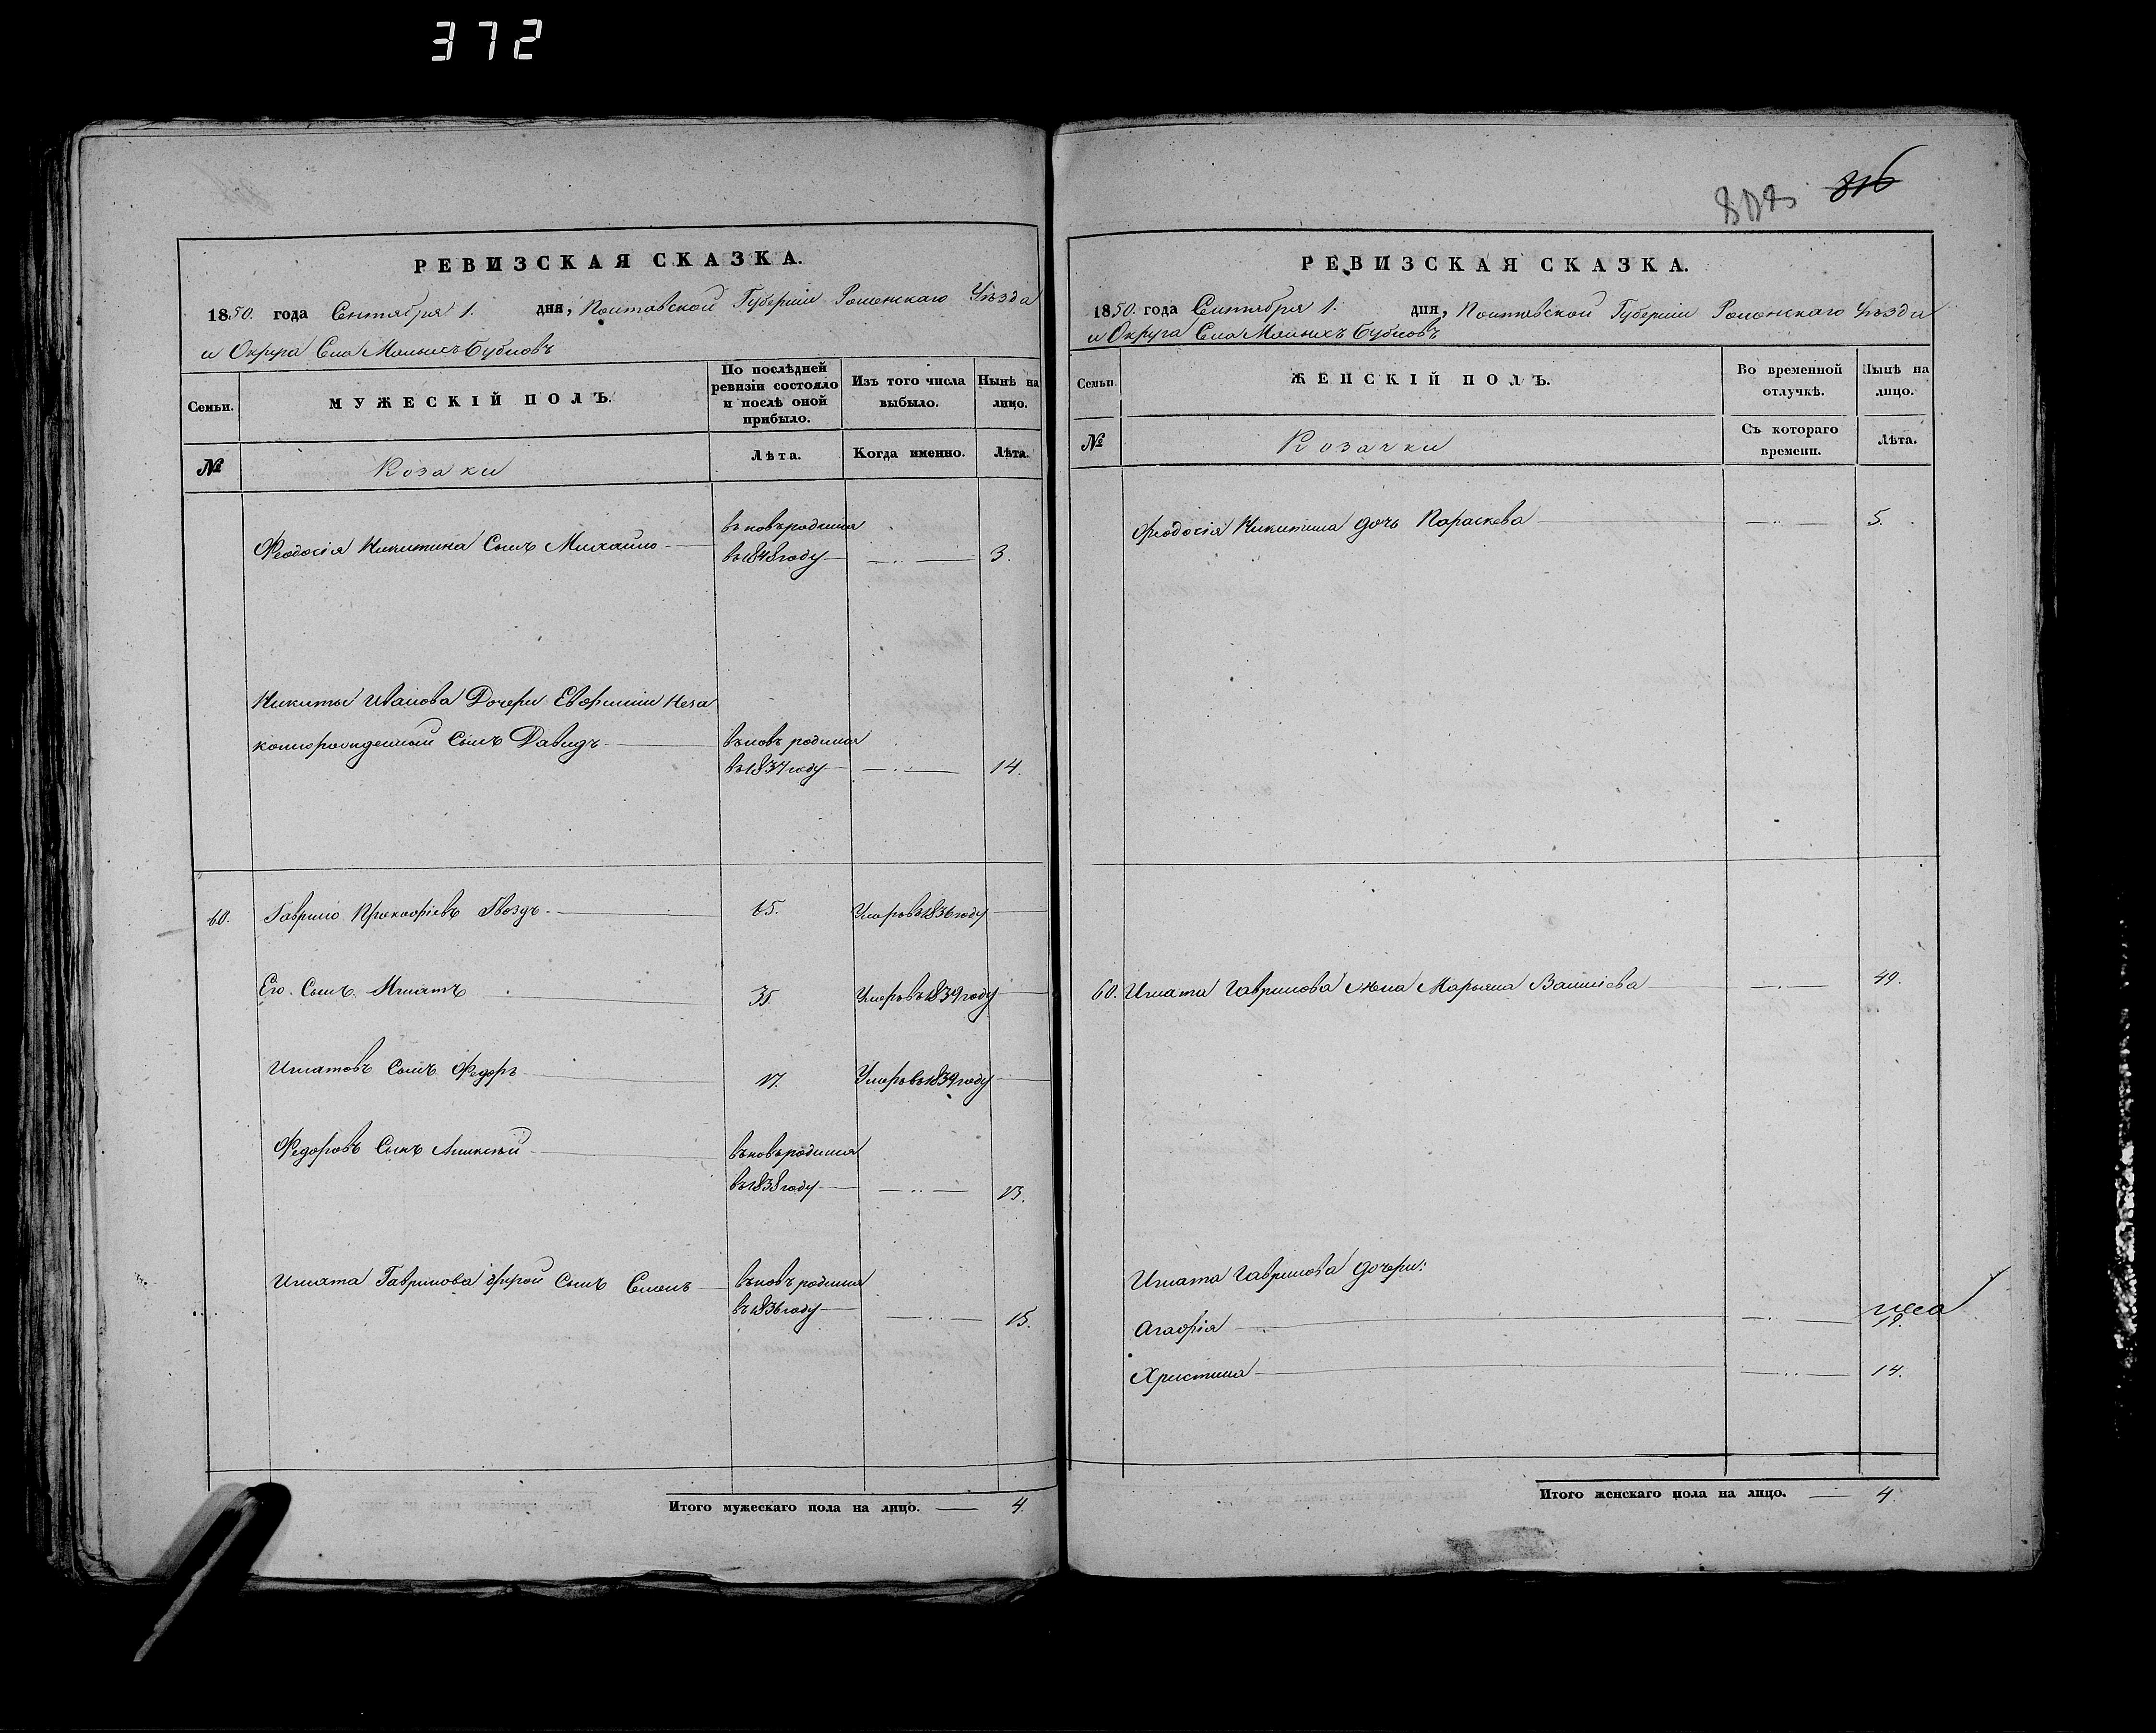 372
816
РЕВИЗСКАЯ СКАЗКА.
1850. года Сентября 1. дня, Полтавской Губерніи Роменскаго Уѣзда
и Округа Села Малыхъ Бубновъ
Семьи.
МУЖЕСКІЙ ПОЛЪ.
По послѣдней
ревизіи состояло
и послѣ оной
прибыло.
Изъ того числа
выбыло.
Нынѣ на
лицо.
№
Козаки
Лѣта.
Когда именно.
Лѣта.
Феодосія Никитина Сынъ Михайло
вновь родился
въ 1848 году
3.
Никиты Иванова Дочери Евфиміи Неза
коннорожденный Сынъ Давидъ
вновь родился
въ 1837 году
14.
60. Гаврило Прокофіевъ Гвоздь 65. Умеръ въ 1836 году
Его Сынъ Игнатъ 35. Умеръ въ 1839 году
Игнатовъ Сынъ Федоръ 17. Умеръ въ 1839 году
Федоровъ Сынъ Алексѣй
вновь родился
въ 1838 году
13.
Игната Гаврилова другой Сынъ Семенъ
вновь родился
въ 1836 году
15.
Итого мужескаго пола на лицо. 4
РЕВИЗСКАЯ СКАЗКА.
1850. года Сентября 1. дня, Полтавской Губерніи Роменскаго Уѣзда
и Округа Села Малыхъ Бубновъ
Семьи.
ЖЕНСКІЙ ПОЛЪ.
Во временной
отлучкѣ.
Нынѣ на
лицо.
№
Козачки
Съ котораго
времени.
Лѣта.
Феодосія Никитина дочь Параскева 5.
60. Игната Гаврилова жена Марьяна Васильева 49.
Игната Гаврилова дочери:
Агафія 19.
Христина 14.
Итого женскаго пола на лицо. 4.